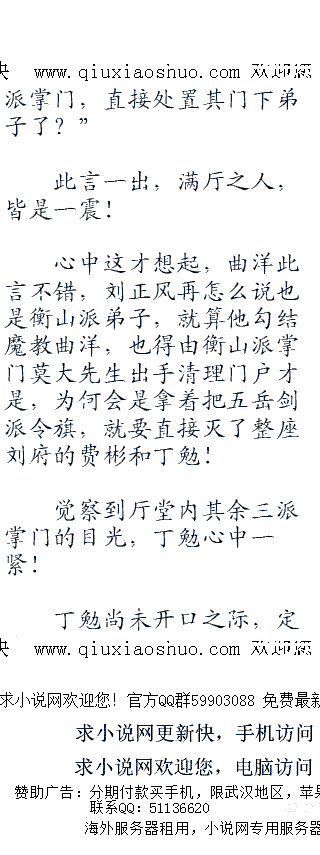 快 www.qiuxiaoshuo.com 欢迎您
派掌门，直接处置其门下弟
子了？”
此言一出，满厅之人，
皆是一震！
心中这才想起，曲洋此
言不错，刘正风再怎么说也
是衡山派弟子，就算他勾结
魔教曲洋，也得由衡山派掌
门莫大先生出手清理门户才
是，为何会是拿着把五岳剑
派令旗，就要直接灭了整座
刘府的费彬和丁勉！
觉察到厅堂内其余三派
掌门的目光，丁勉心中一
紧！
丁勉尚未开口之际，定
快 www.qiuxiaoshuo.com 欢迎您
求小说网欢迎您！官方QQ群59903088 免费最新
求小说网更新快，手机访问
求小说网欢迎您，电脑访问
赞助广告：分期付款买手机，限武汉地区，苹果
联系QQ：51136620
海外服务器租用，小说网专用服务器